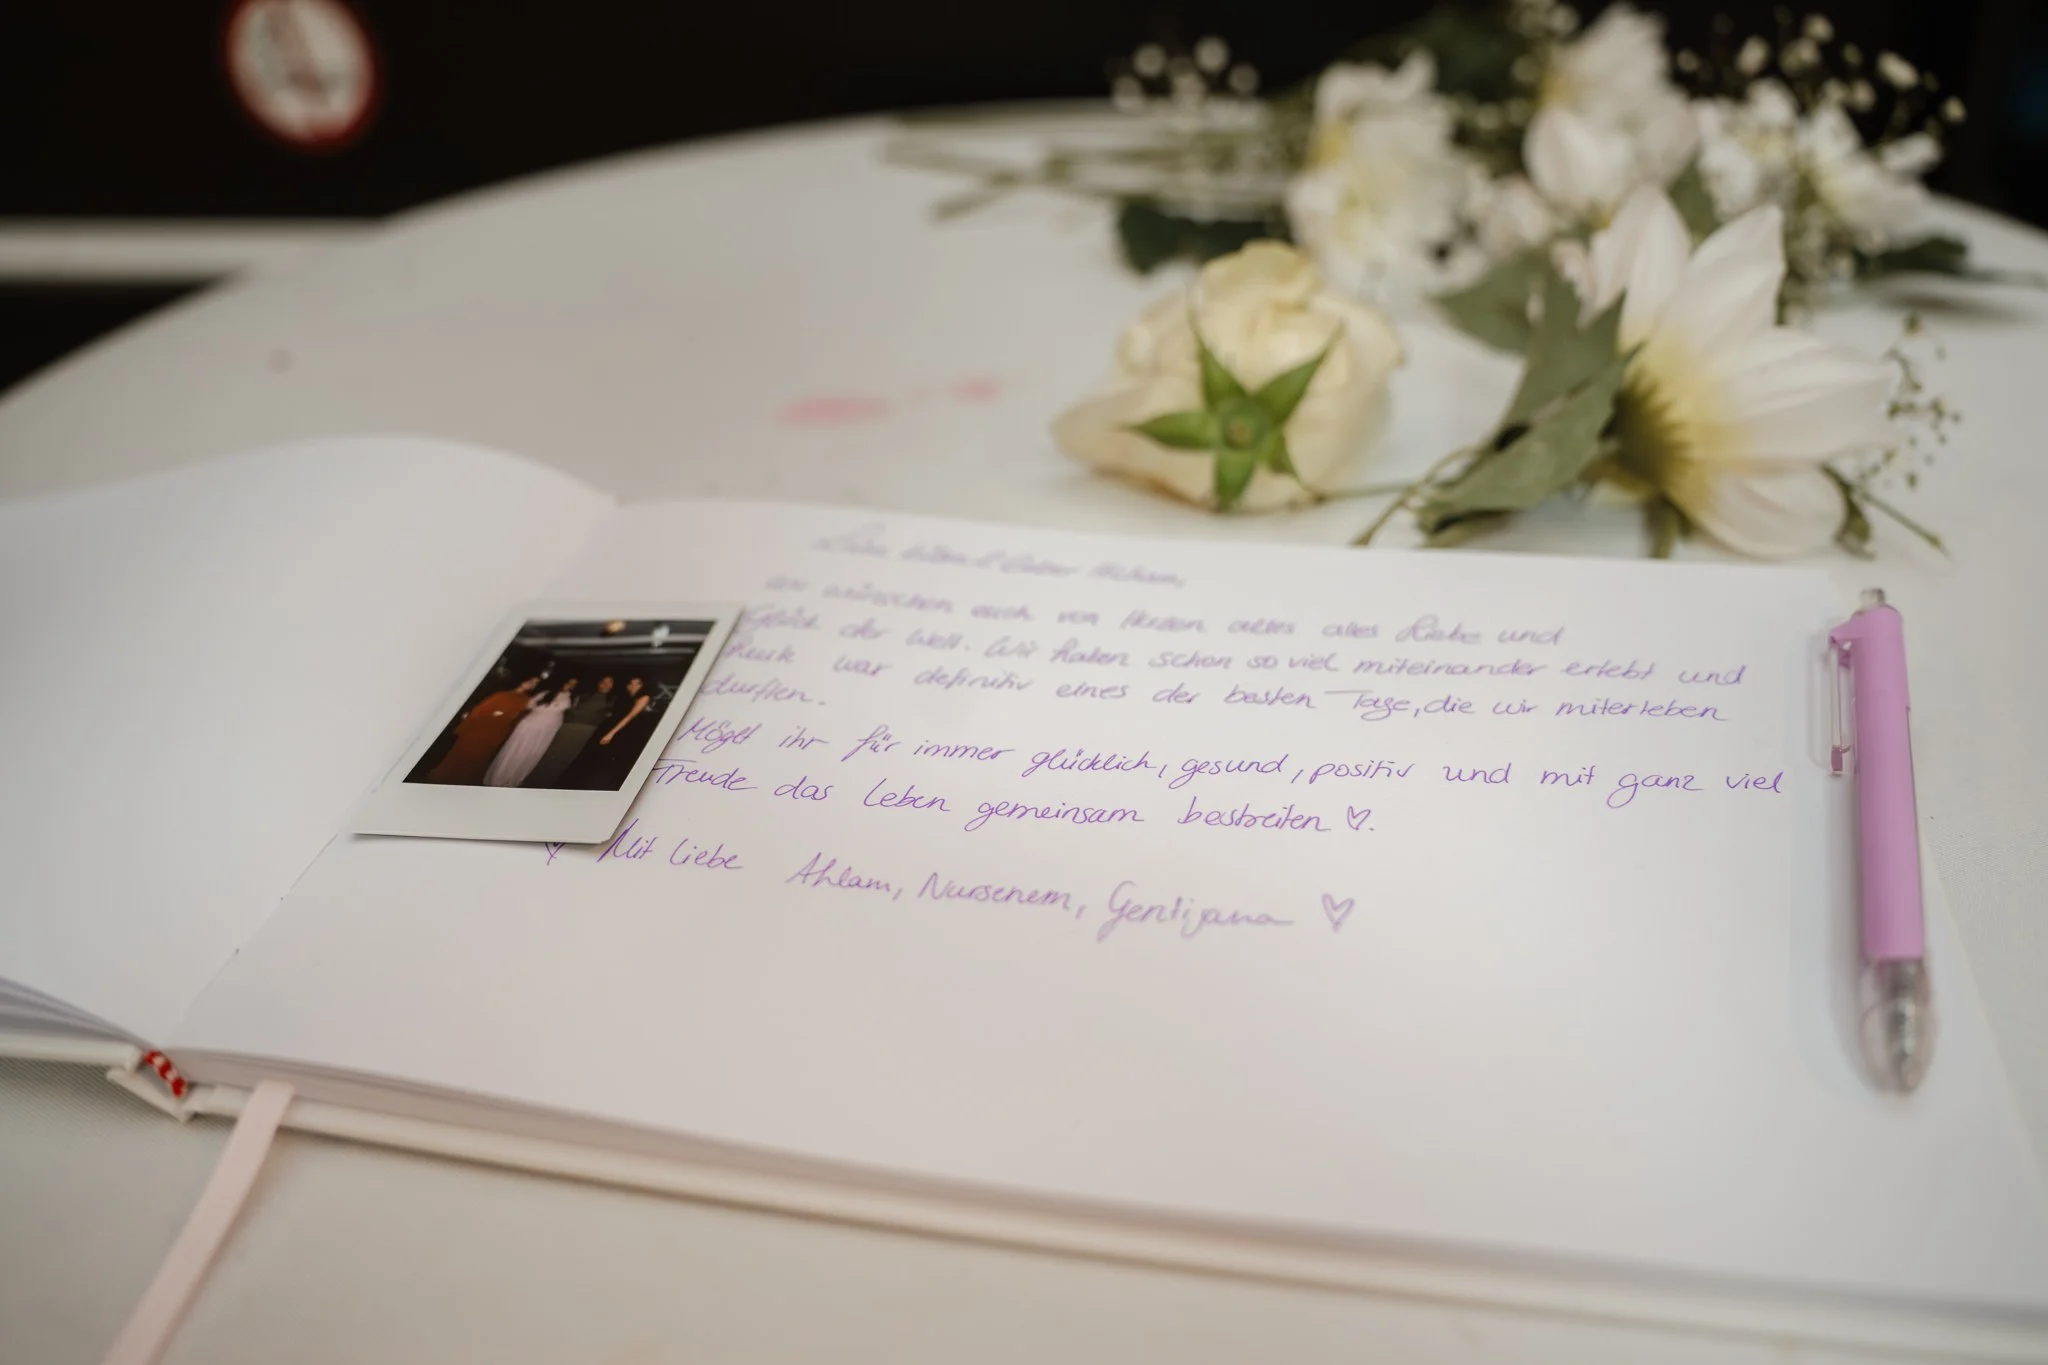 wir wünschen euch von Herzen alles alles Liebe und
Glück der Welt. Wir haben schon so viel miteinander erlebt und
heute war definitiv eines der besten Tage, die wir miterleben
durften.
Mögt ihr für immer glücklich, gesund, positiv und mit ganz viel
Freude das Leben gemeinsam bestreiten ♡.
♡ Mit Liebe Ahlam, Nursenem, Gentijana ♡